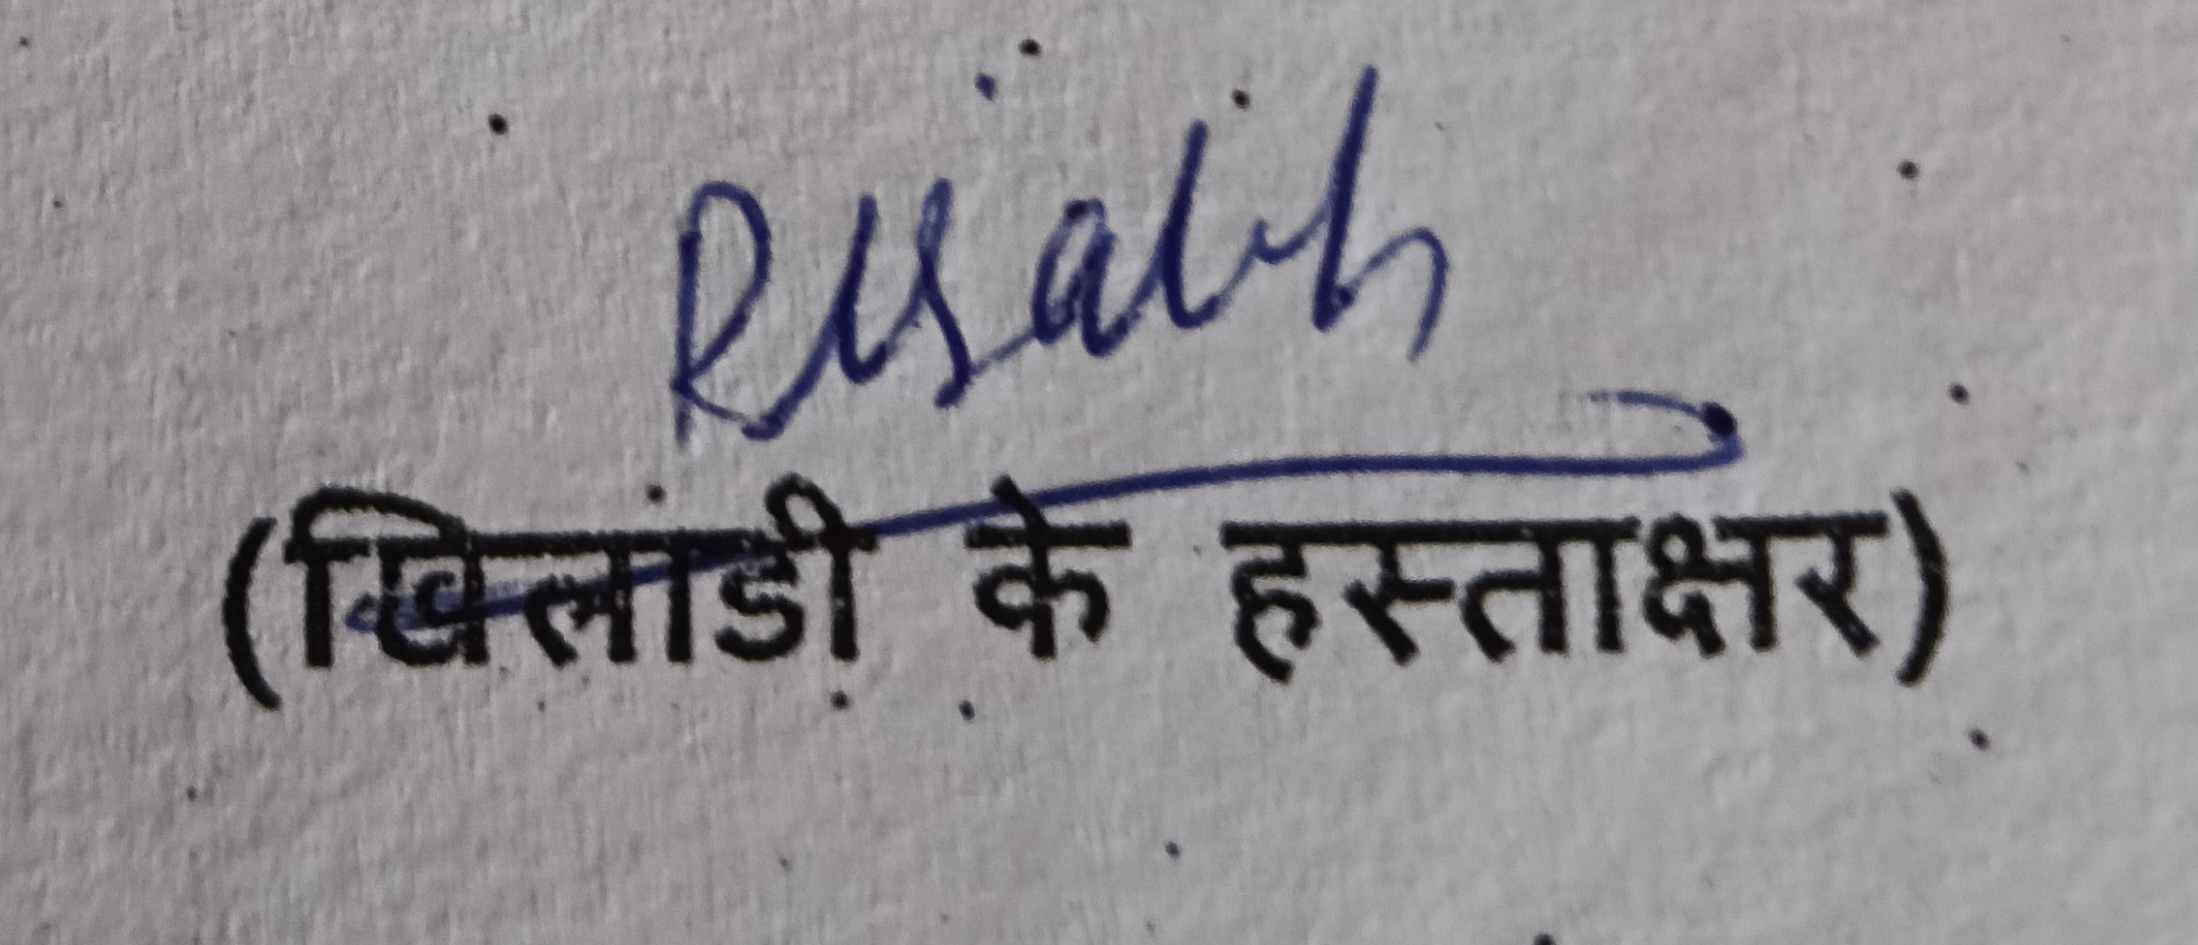 Risabh
(खिलाडी के हस्ताक्षर)